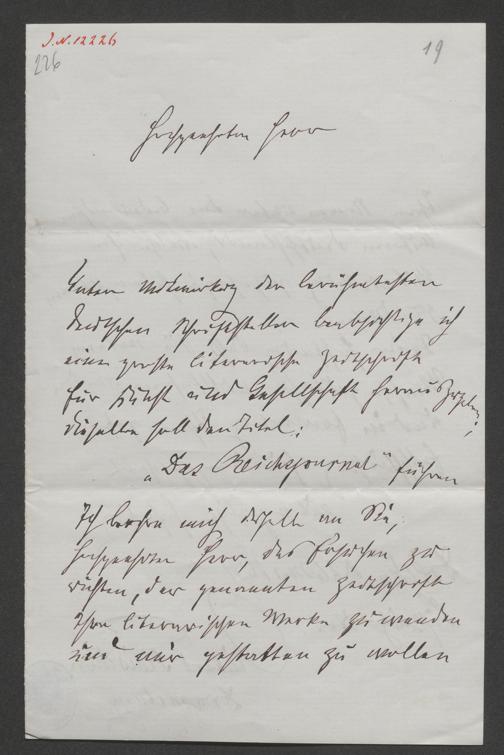 J.N. 12226
226
19
Hochgeehrter Herr
Unter Mitwirkung der berühmtesten
deutschen Schriftsteller beabsichtige ich
eine große literarische Zeitschrift
für Kunst und Gesellschaft herauszugeben;
dieselbe soll den Titel:
„Das Reichsjournal" führen
Ich beehre mich deshalb an Sie,
hochgeehrter Herr, das Ersuchen zu
richten, der genannten Zeitschrift
Ihre literarischen Werke zuwenden
und mir gestatten zu wollen